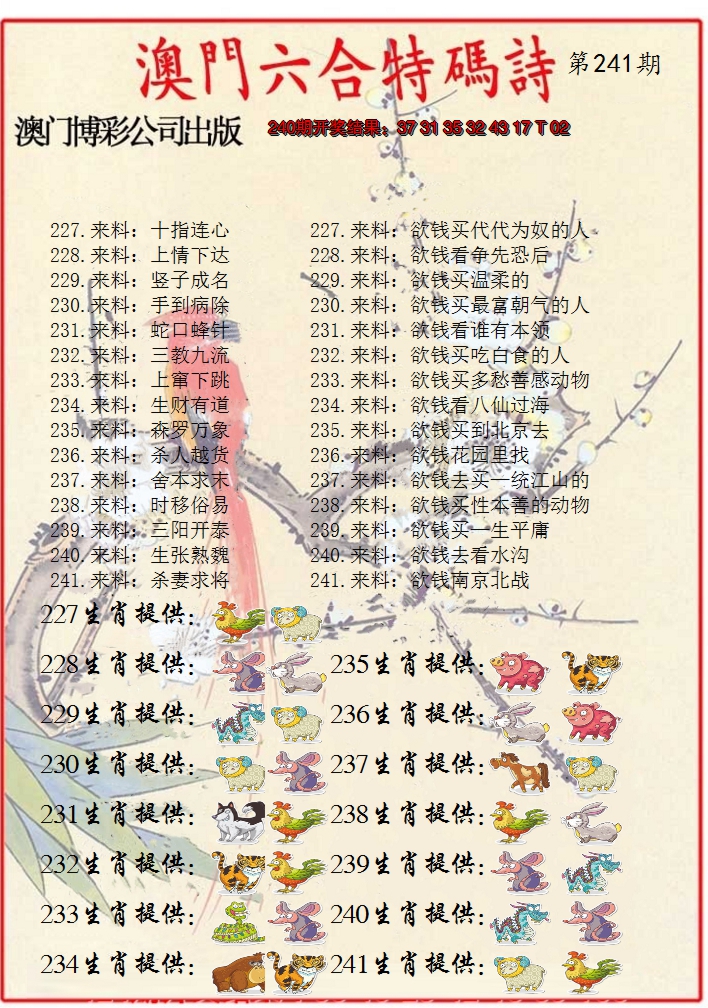 澳門六合特碼詩 第241期
澳门博彩公司出版 240期开奖结果：37 31 35 32 43 17 T 02
227.来料：十指连心 227.来料：欲钱买代代为奴的人
228.来料：上情下达 228.来料：欲钱看争先恐后
229.来料：竖子成名 229.来料：欲钱买温柔的
230.来料：手到病除 230.来料：欲钱买最富朝气的人
231.来料：蛇口蜂针 231.来料：欲钱看谁有本领
232.来料：三教九流 232.来料：欲钱买吃白食的人
233.来料：上窜下跳 233.来料：欲钱买多愁善感动物
234.来料：生财有道 234.来料：欲钱看八仙过海
235.来料：森罗万象 235.来料：欲钱买到北京去
236.来料：杀人越货 236.来料：欲钱花园里找
237.来料：舍本求末 237.来料：欲钱去买一统江山的
238.来料：时移俗易 238.来料：欲钱买性本善的动物
239.来料：三阳开泰 239.来料：欲钱买一生平庸
240.来料：生张熟魏 240.来料：欲钱去看水沟
241.来料：杀妻求将 241.来料：欲钱南京北战
227生肖提供：
228生肖提供： 235生肖提供：
229生肖提供： 236生肖提供：
230生肖提供： 237生肖提供：
231生肖提供： 238生肖提供：
232生肖提供： 239生肖提供：
233生肖提供： 240生肖提供：
234生肖提供： 241生肖提供：